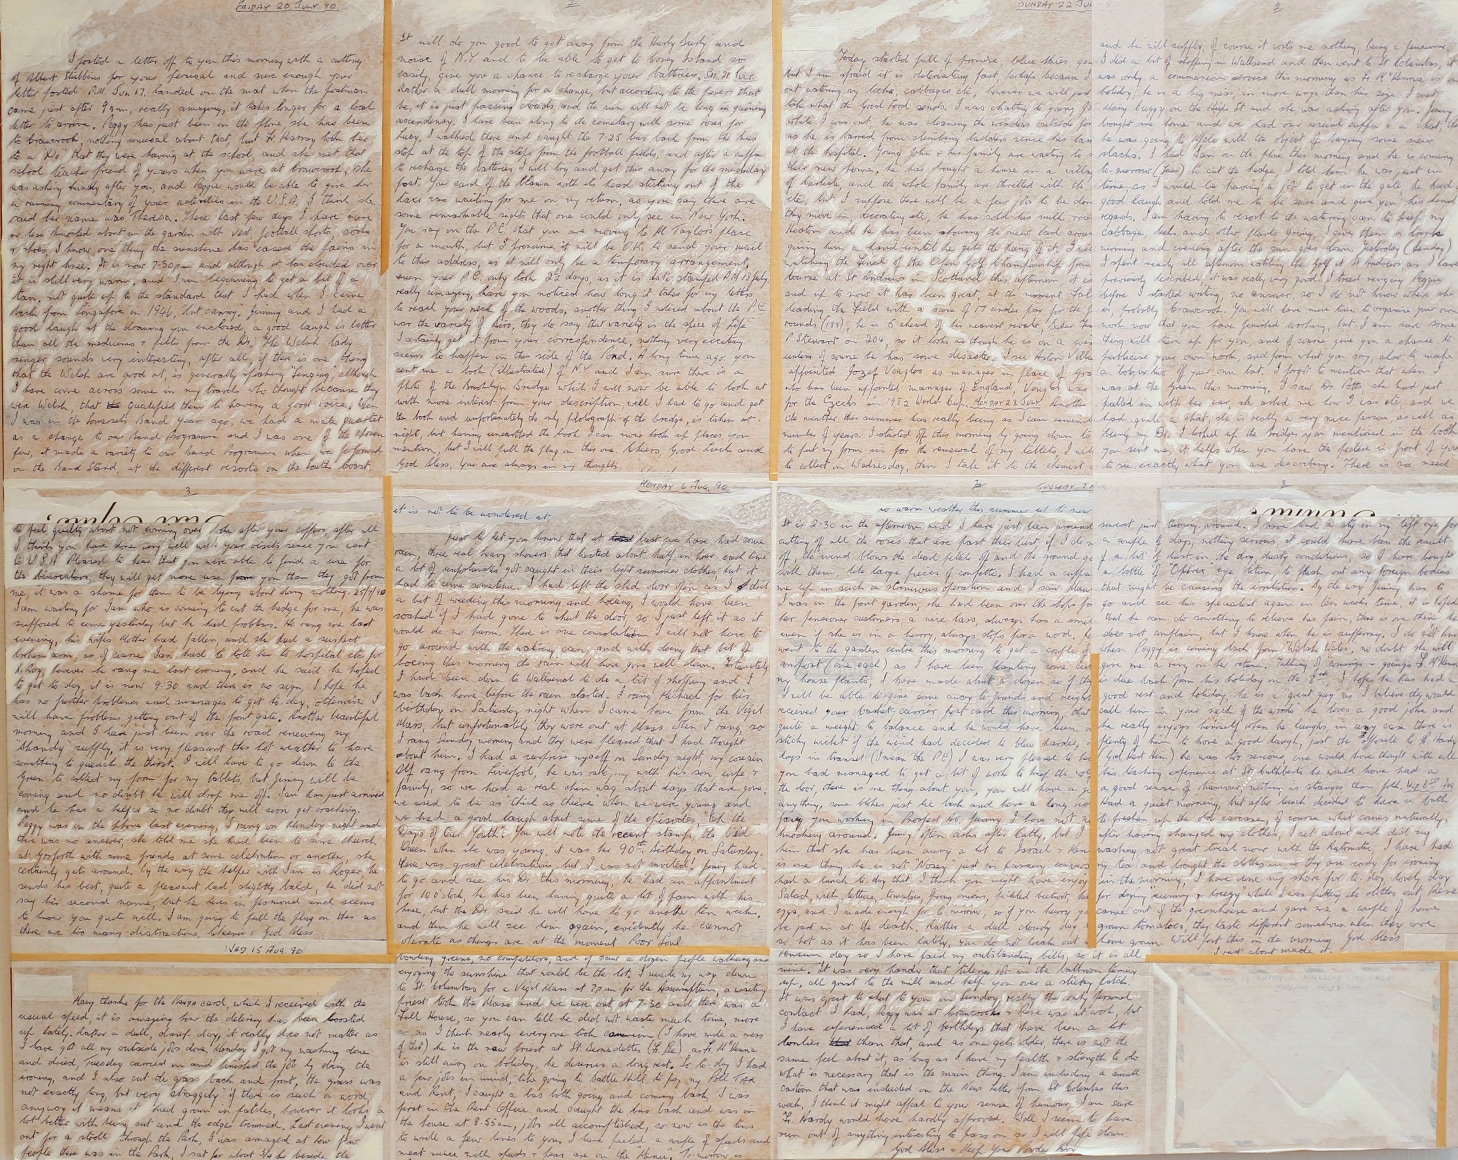 FRIDAY 20 JULY 90
I posted a letter off to you this morning with a cutting
of Albert Stubbins for your perusal and sure enough your
letter posted P.M. Jun 17, landed on the mat when the postman
came just after 9 am, really amazing, it takes longer for a local
letter to arrive. Peggy has just been on the phone she had been
to Cravcrook, nothing unusual about that, but Fr. Harvey took her
to a "Do" that they were having at the school, and she met that
school teacher friend of years when you were at
was asking kindly after you, and Peggy would be able to give her
a running commentary of your activities in the U.S.A, I think she
said her name was Theresa. These last few days I have more
or less knocked about in the garden with old football shorts, socks
& shoes, I know one thing the sunshine has eased the pains in
my right knee. It is now 7-30pm and although it has clouded over
it is still very warm, and I am beginning to get a bit of a
tan, not quite up to the standard that I had when I came
back from Singapore in 1946, but Jimmy and I had a
good laugh at the drawing you enclosed, a good laugh is better
than all the medicines & pills from the Drs, The Welsh lady
singer sounds very interesting, after all, if there is one thing
that the Welsh are good at, is generally speaking singing, although
I have come across some in my travels who thought because they
were Welsh, that qualified them to having a good voice, When
I was in
as a change to our Band Programme and I was one of the chosen
few, it made a variety to our Band Programme when we performed
on the Band Stand, at the different resorts on the South Coast.
2
It will do you good to get away from the Hurly Burly and
noise of N.Y and to be able to get to Coney Island so
easily, give you a chance to recharge your batteries, Sat 21 July
Rather a dull morning for a change but according to the forecast
be, it is just passing clouds and the sun will not be long in gaining
ascendancy. I have been along to the cemetery with some roses for
Mary, I walked there and caught the 7-25 bus back from the bus
stop at the top of the steps from the football fields, and after a cuppa
to recharge the batteries I will try and get this away for the midday
post. You card of the Manx with its head sticking out of the
was waiting for me on my return, as you say there are
some remarkable sights that one would only see in New York.
You say on the P.C. that you are moving to Mr Taylors place
for a month, but I presume it will be O.K. to send your mail
to this address, as it will only be a temporary arrangement,
even your P.C. only took 3½ days, as it is date stamped P.M. 17 July
really amazing, have you noticed how long it takes for my letters
to reach your neck of the woods, another thing I noticed about the P.C
was the variety of
I certainly get it from your correspondence, nothing very exciting
seems to happen on this side of the Pond, A long time ago you
sent me a book (illustrated) of N.Y and I am sure there is a
photo of the Brooklyn Bridge which I will now be able to look at
with more interest from your description will I had to go and get
the book and unfortunately the only photograph of the bridge, is taken at
night, but having unearthed the book I can now look up places you
mention, that I will pull the plug on this one, Cheers, Good Luck and
God bless. You are always in my thoughts
SUNDAY 22 JUL
Today started full of promise, blue skies
but I am afraid it is deteriating fast, perhaps because I
out watering my leeks, cabbages etc, however we will just
take what the Good Lord sends, I was chatting to young
while I was out, he was cleaning the windows outside for
as he is barred from climbing ladders since his
at the hospital. Young John & his family are waiting to
their new home, he has bought a house in a
and the whole family are thrilled with the
etc, but I suppose there will be a few jobs to be done
they move in, decorating etc, he has sold his milk
and he has been showing the new lad around
giving him a hand until he gets the hang of it,
watching the Final of the Open Golf Championship from
course at St Andrews in Scotland this afternoon
and up to now it has been great, at the moment
leading the Field with a score of 17 under par for the
rounds (199), he is 5 ahead of his nearest rivals,
P Stewart on 204, so it looks as though he is on a
unless of course he has some disaster, I see Aston Villa
appointed Jozef Venglos as manager in place of
who has been appointed manager of England, Venglos was
for the Czechs in 1982 World Cup. MONDAY 23 JULY Another
the weather this summer has really been as I can remember
number of years. I started off this morning by going down to
to put my form in for the renewal of my tablets, I will
to collect on Wednesday, then I take it to the chemist
2
and he will supply, of course it costs me nothing, being a pensioner,
I did a bit of shopping in Wallsend and then went to St Columbas, it
was only a communion service this morning as Fr McKenna is on
holiday, he is a big miss, in more ways than his size. I met
Mary on the High St and she was asking after you, Jimmy
brought me home and we had our usual cuppa & a chat,
he was going to
slacks. I had Ian on the phone this morning and he is coming
to-morrow (Tues) to cut the hedge, I told him he was just in
time, as I would be having a job to get in the gate, he had
good laugh and told me to be sure and give you his kind
regards. I am having to resort to the watering can to keep my
cabbage, leeks and other plants going, I give them a drink
morning and evening after the sun goes down, yesterday (Sunday)
I spent nearly all afternoon watching the Golf at St Andrews as I have
previously described, it was really very good, I tried ringing Peggy
before I started writing, no answer, so I do not know where she
is, probably Crawcrook. You will have more time to organise your own
work now that you have finished working, but I am sure some
thing will turn up for you, and of course give you a chance to
was at the Green this morning, I saw Dr Potts, she had just
pulled in with her car, she asked me how I was etc, and we
had quite a chat, she is really a very nice person as well as
being my Dr. I looked up the bridges you mentioned in the book
you sent me, it helps when you have the picture in front of you
to see exactly what you are describing. There is no need
3
to feel guilty about not coming over, look after your coffers, after all
I think you have done very well with your visits since you went
to U.S.A Pleased to hear that you were able to find a use for
the binoculars, they will get more use from you than they got from
me, it was a shame for them to be lying about doing nothing. 25/7/90
I am waiting for Ian who is coming to cut the hedge for me, he was
supposed to come yesterday but he had problems. He rang me last
evening, his wifes Mother had fallen, and she had a suspect
broken arm, so of course Ian had to take her to hospital etc for
X-Ray, however he rang me last evening, and he said he hoped
to get to-day, it is now 9-30 and there is no sign, I hope he
has no further problems and manages to get to-day, otherwise I
will have problems getting out of the front gate. Another beautiful
morning and I had just been over the road renewing my
Shandy supply, it is very pleasant this hot weather to have
something to quench the thirst. I will have to go down to the
Green to collect my form for my tablets, but Jimmy will be
coming and no doubt he will drop me off. Ian has just arrived
and he has a helper so no doubt they will soon get cracking,
Peggy was on the phone last evening, I rang on Monday night and
there was no answer, she told me she had been to some church
at Gosforth with some friends at some celebration or another, she
certainly gets around. By the way the helper with Ian is Roger, he
sends his best, quite a pleasant lad, slightly bald, he did not
say his second name, but he lives in Jesmond and seems
to know you quite well. I am going to pull the plug on this as
there are too many distractions, Cheerio & God Bless
MONDAY 6 AUG. 90
it is not to be wondered at
Just to let you know that at last we have had some
rain, three real heavy showers that lasted about half an hour, and some
a lot of unfortunates got caught in their light summer clothes but it
had to come sometime. I had left the shed door open as I did
a bit of weeding this morning and hoeing, I would have been
soaked if I had gone to shut the door, so I just left it as it
would do no harm. There is one consolation I will not have to
go around with the watering can, and with doing that bit of
hoeing this morning the rain will have gone well down. Fortunately
I had been down to Wallsend to do a bit of shopping and I
was back home before the rain started. I rang Michael for his
birthday on Saturday night when I came home from the Vigil
Mass, but unfortunately they were out at Mass when I rang, so
I rang Sunday morning and they were pleased that I had thought
about them. I had a surprise myself on Sunday night my cousin
Alf rang from Liverpool, he was staying with his son, wife &
family, so we had a real chin wag about days that are gone,
we used to be as "thick as thieves" when we were young and
we had a good laugh about some of the episodes, Oh the
Days of Our Youth. You will note the recent stamp, the Old
Queen when she was young, it was her 90th birthday on Saturday,
there was great celebrations, but I was not invited! Jimmy had
to go and see his Dr this morning, he had an appointment
for 10 o clock, he has been having quite a lot of pain with his
knee, but the Dr. said he will have to go another ten weeks,
and then he will see him again, evidently he cannot
operate as things are at the moment Poor Soul
2
TUESDAY 7 A
no worse weather this summer up to now
It is 2-30 in the afternoon and I have just been around
cutting off all the roses that are past their best, if I do
if the wind blows the dead petals off and the ground
with them like large pieces of confetti. I had a cuppa
me up in such a strenuous operation and I saw
I was in the front garden, she had been over the shops for
her pensioner customers, a nice lass, always has a smile
even if she is in a hurry, always stops for a word,
went to the garden centre this morning to get a couple of
compost (one each) as I have been planting some
my house plants, I have made about a dozen so if they
I will be able to give some away to friends and neighbours
received your basket carrier post card this morning, what
quite a weight to balance and he would have been
sticky wicket if the wind had decided to blow harder,
togs in transit (I mean the P.C) I was very pleased to
you had managed to get a bit of work to keep the wolf
the door, there is one thing about you, you will have a go
anything, some blokes just lie back and have a long
knocking around. Jimmy often asks after Cathy, but I
him that she has been away a lot to Israel & then
is one thing he is not "Nosey", just in
had a lunch to-day that I think you might have enjoyed
Salad with lettuce, tomatoes, spring onions, pickled beetroot,
eggs, and I made enough for to-morrow, so if you hurry you
be put in at the death. Rather a dull cloudy day
so hot as it has been lately, you do not leak out
3
sweat just turning around. I have had a sty in my left eye for
a couple of days, nothing serious it could have been the result
of a bit of dust in the dry dusty conditions, so I have bought
a bottle of "Optrex" eye lotion to flush out any foreign bodies
that might be causing the irritation. By the way Jimmy has to
go and see his specialist again in ten weeks time, it is hoped
that he can do something to relieve his pain, there is one thing he
does not complain, but I know when he is suffering, I do not know
when Peggy is coming back from Welsh Wales, no doubt she will
give me a ring on her return, Talking of comings & goings Fr McKenna
is due back from his holiday on the 9th, I hope he has had a
good rest and holiday, he is a great guy as I believe they would
call him in your neck of the woods he loves a good joke and
he really enjoys himself when he laughs, in any case there is
plenty of him to have a good laugh, just the opposite to Fr Hardy
(God Rest Him) he was too serious, one would have thought with all
his teaching experience at St. Cuthberts he would have had a
a good sense of humour, nothing is stranger than folk. Wed 8th Aug
Had a quiet morning, but after lunch decided to have a bath
to freshen up the old carcase, of course what comes naturally,
after having changed my clothes, I set about and did my
washing, not great toil now with the Automatic. I have had
my tea and brought the clothes in, they are ready for ironing
in the morning, I have done my share for to-day, lovely day
for drying "sunny & breezy" while I was putting the clothes out,
came out of the greenhouse and gave me a couple of home
grown tomatoes, they taste different somehow when they are
home grown. Will post this in the morning God bless
I just about made it.
WED 15 AUG. 90
Many thanks for the card, which I received with the
usual speed, it is amazing how the delivery has been boosted
up lately. Rather a dull, damp day, it really does not matter as
I have got all my outside jobs done, Monday I got my washing done
and dried, Tuesday carried on and finished the job by doing the
ironing, and I also cut the grass back and front, the grass was
not exactly long, but very straggly if there is such a word,
anyway it means it had grown in patches, however it looks a
lot better with being cut and the edges trimmed. Last evening I went
out for a stroll through the Park, I was amazed at how few
people there was in the Park, I sat for about ¾ hr beside the
bowling greens, no competitors, and if saw a dozen people walking and
enjoying the sunshine that would be the lot, I made my way down
to St Columbas for a Vigil Mass at 7pm for the Assumption, a visiting
priest took the Mass and we were out at 7-30 and there was a
Full House, so you can tell he did not waste much time, more
so as I think nearly everyone took communion (I have wrote a mess
of that) he is the new priest at St Bernadettes as Fr McKenna
is still away on holiday, he deserves a long rest. So to-day I had
a few jobs in mind, like going to Battle Hill to pay my Poll Tax
and Rent, I caught a bus both going and coming back, I was
first in the Rent Office and caught the bus back and was in
the house at 9-55am, jobs all accomplished, so now is the time
to write a few lines to you, I have peeled a couple of spuds and
meat mince with spuds & peas are on the Menu. To-morrow is
Pension day so I have fixed my outstanding bills, so it is all
mine. It was very handy that
up, all grist to the mill and help you over a sticky patch.
It was great to chat to you on Sunday, really the only personal
contact I had, Peggy was at Crawcrook & Rose was at work, but
I have experienced a lot of birthdays that have been a lot
lonlier than that, and as one gets older, there is not the
same feel about it, as long as I have my health & strength to do
what is necessary that is the main thing. I am including a small
cartoon that was included on the News Letter from St Columbas this
week, I think it might appeal to your sense of humour, I am sure
Fr. Hardy would have hardly approved. Well I seem to have
run out of anything interesting to pass on so I will pipe down
God Bless & Keep You